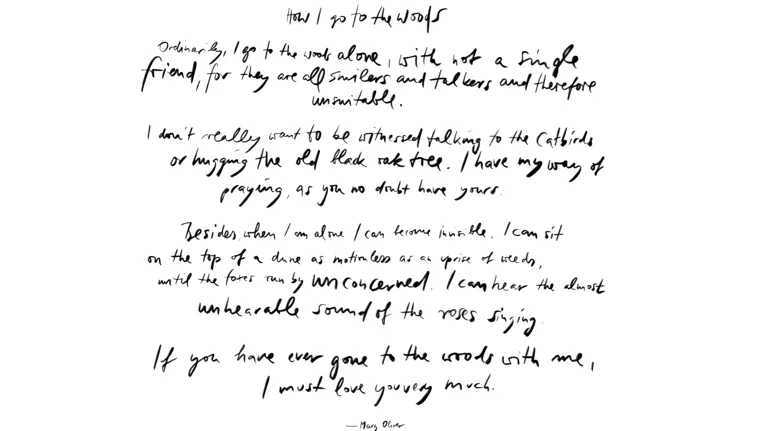 How I go to the woods
Ordinarily, I go to the woods alone, with not a single
friend, for they are all smilers and talkers and therefore
unsuitable.
I don't really want to be witnessed talking to the catbirds
or hugging the old black oak tree. I have my way of
praying, as you no doubt have yours.
Besides, when I am alone I can become invisible. I can sit
on the top of a dune as motionless as an uprise of weeds,
until the foxes run by unconcerned. I can hear the almost
unhearable sound of the roses singing.
If you have ever gone to the woods with me,
I must love you very much.
— Mary Oliver